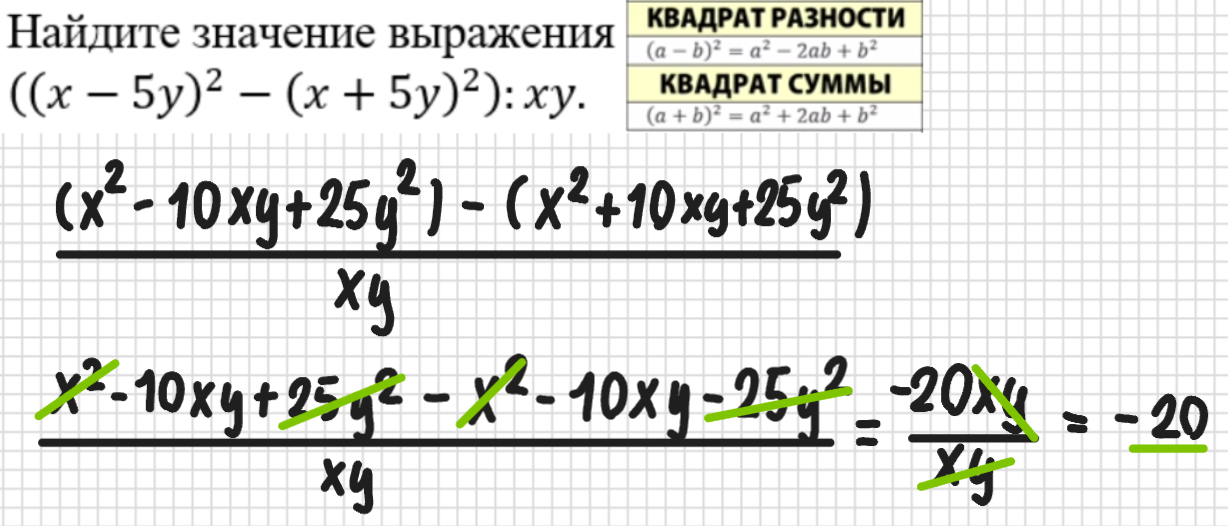 Найдите значение выражения
((x − 5y)² − (x + 5y)²): xy.
КВАДРАТ РАЗНОСТИ
(a − b)² = a² − 2ab + b²
КВАДРАТ СУММЫ
(a + b)² = a² + 2ab + b²
(x² - 10xy + 25y²) - (x² + 10xy + 25y²)
xy
x² - 10xy + 25y² - x² - 10xy - 25y² = -20xy = -20
xy xy